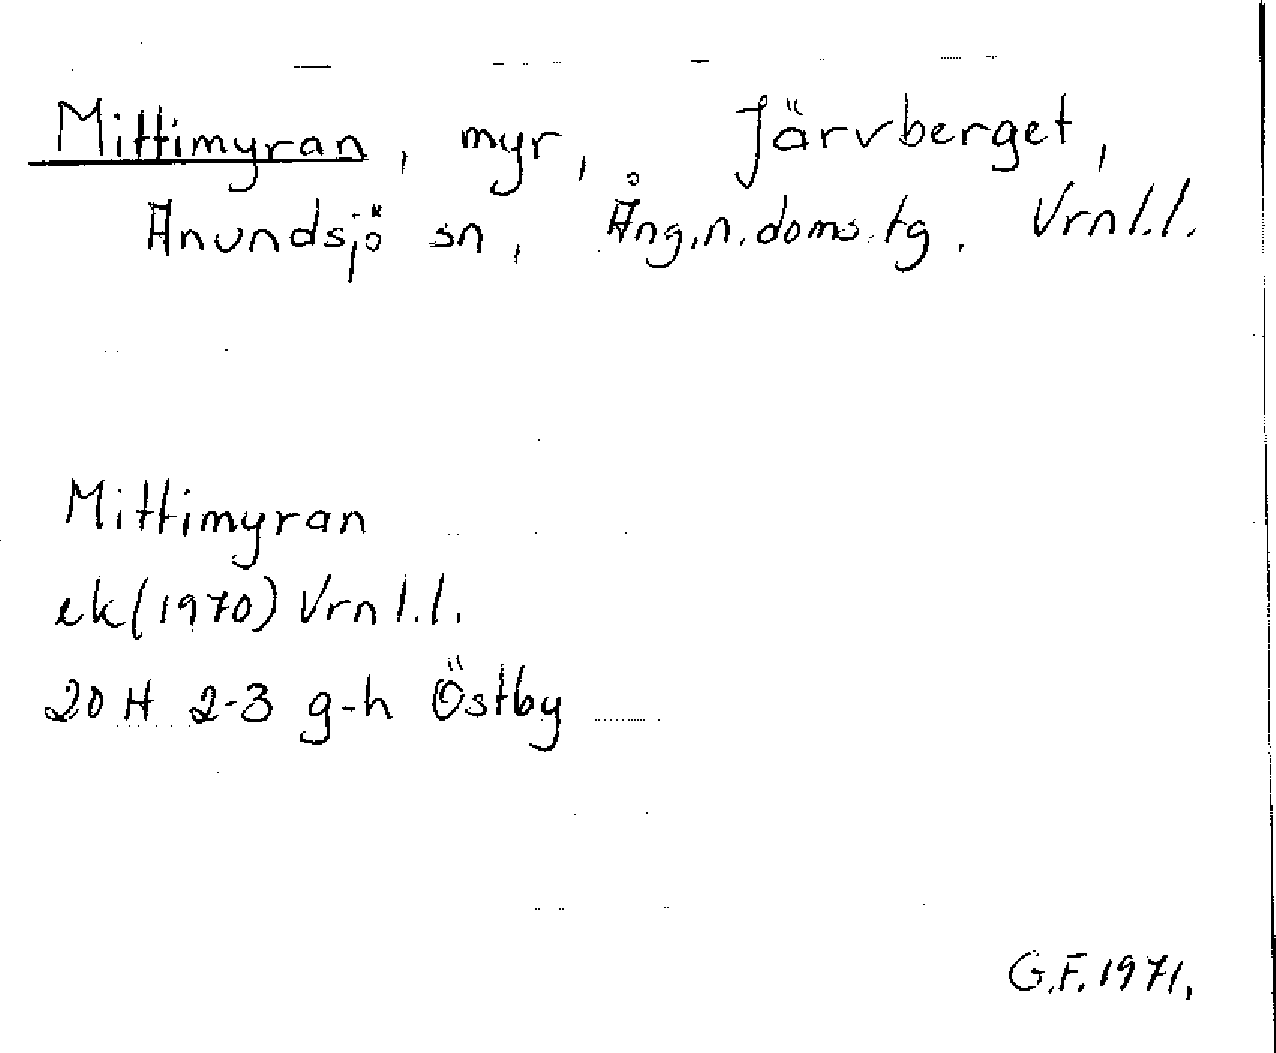 Mittimyran, myr, Järvberget,
Anundsjö sn, Ång.n.doms.tg. Vrnl.l.
Mittimyran
ek(1970) Vrnl.l.
20 H 2-3 g-h Östby
G.F. 1971.